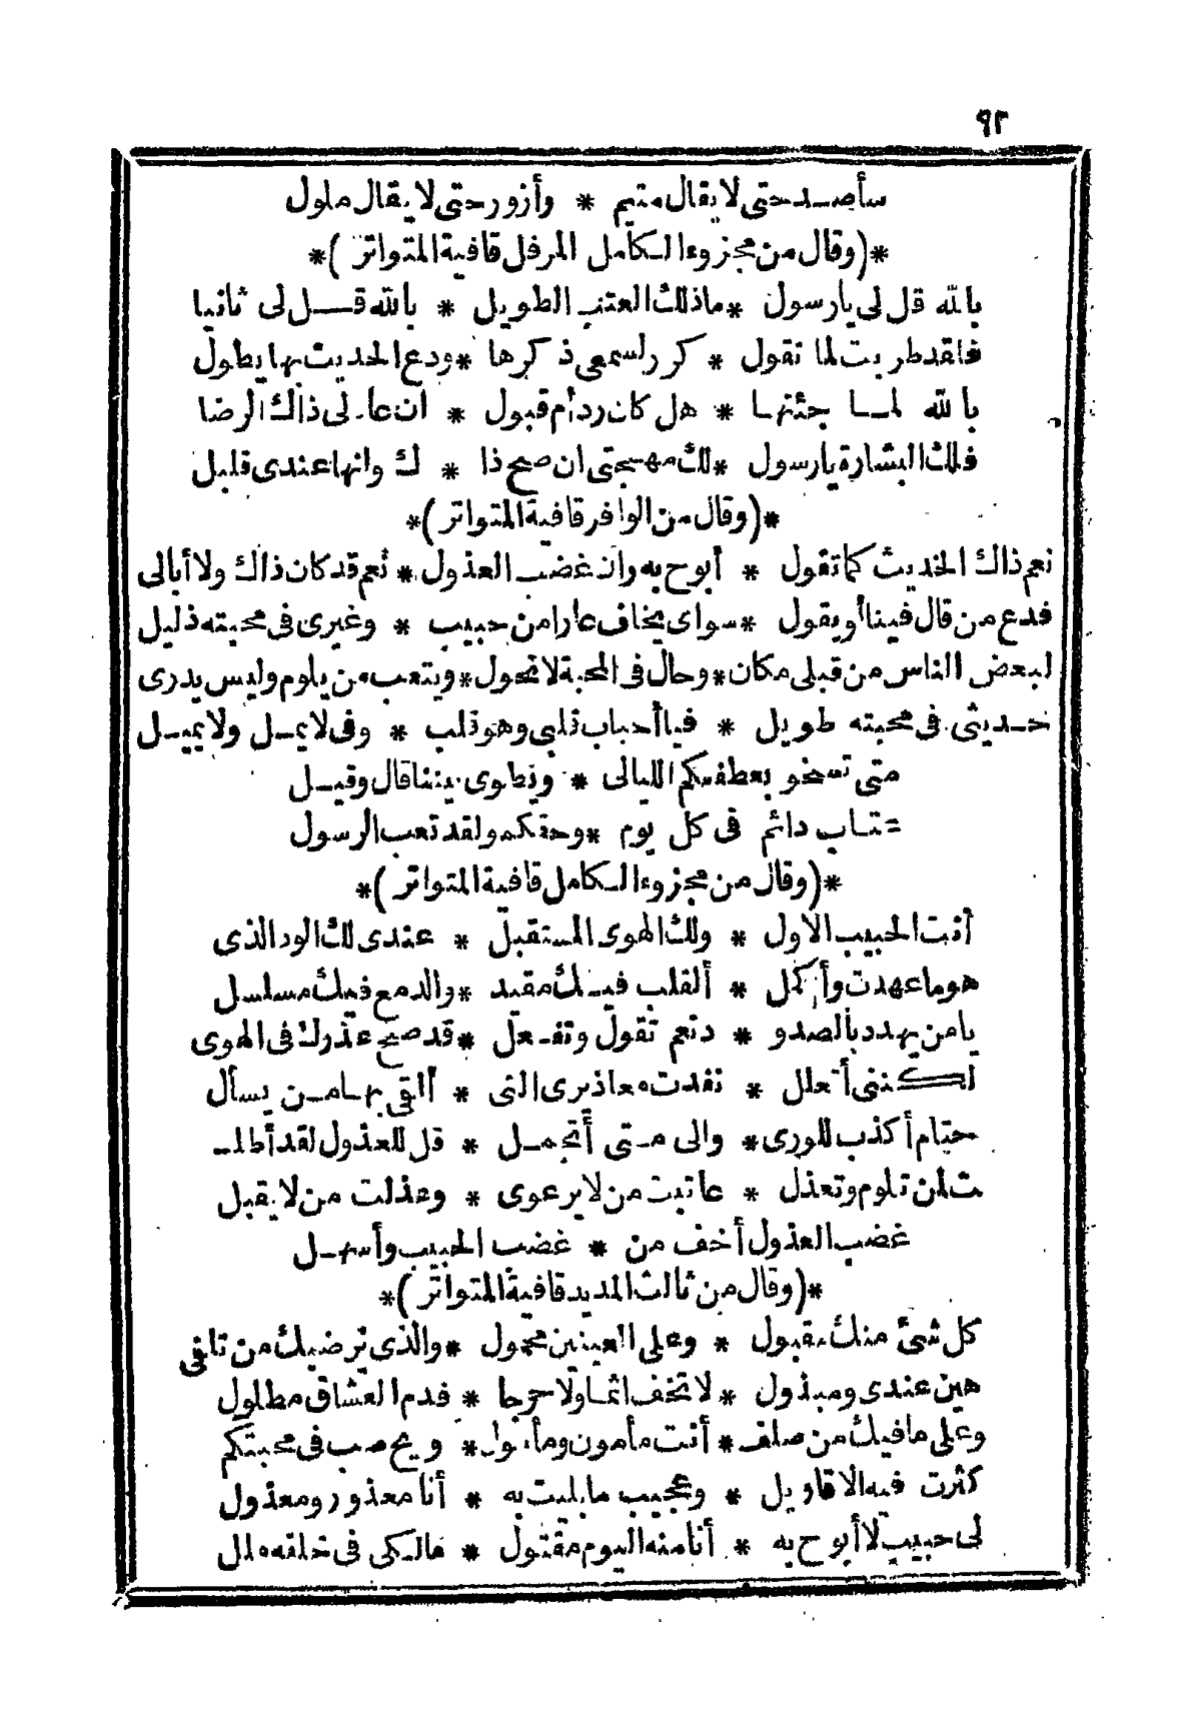 ٩٢
سأصد حتى لا يقال متيم * وأزور حتى لا يقال ملول
*(وقال من مجزوء الكامل المرفل قافية المتواتر)*
بالله قل لى يارسول * ماذلك العتب الطويل * بالله قل لى ثانيا
فلقد طربت لما تقول * كرر لسمعى ذكرها * ودع الحديث بها يطول
بالله لما جئتها * هل كان رد أم قبول * ان عاد لى ذاك الرضا
فلك البشارة يارسول * لك مهجتى ان صح ذا * ك وانها عندى قليل
*(وقال من الوافر قافية المتواتر)*
نعم ذاك الحديث كما تقول * أبوح به وان غضب العذول * نعم قد كان ذاك ولا أبالى
فدع من قال فينا أو يقول * سواى يخاف عارا من حبيب * وغيرى فى محبته ذليل
لبعض الناس من قبلى مكان * وحال فى المحبة لا تحول * ويتعب من يلوم وليس يدرى
حديثى فى محبته طويل * فيا أحباب قلبى وهو قلب * وفى لا يمل ولا يميل
متى تسخو بعطفكم الليالى * ونطوى بيننا قال وقيل
عتاب دائم فى كل يوم * وحقكم ولقد تعب الرسول
*(وقال من مجزوء الكامل قافية المتواتر)*
أنت الحبيب الاول * ولك الهوى المستقبل * عندى لك الود الذى
هو ما عهدت وأكمل * ألقلب فيك مقيد * والدمع فيك مسلسل
يامن يهدد بالصدو * د نعم تقول وتفعل * قد صح عذرك فى الهوى
لكننى أتعلل * نفدت معاذيرى التى * ألقى بها من يسأل
حتام أكذب للورى * والى متى أتجمل * قل للعذول لقد أطلـ
ـت لمن تلوم وتعذل * عاتبت من لا يرعوى * وعذلت من لا يقبل
غضب العذول أخف من * غضب الحبيب وأسهل
*(وقال من ثالث المديد قافية المتواتر)*
كل شئ منك مقبول * وعلى العينين محمول * والذى يرضيك من تلفى
هين عندى ومبذول * لا تخف اثما ولا حرجا * فدم العشاق مطلول
وعلى ما فيك من صلف * أنت مأمون ومأمول * ويح صب فى محبتكم
كثرت فيه الاقاويل * وعجيب ما بليت به * أنا معذور ومعذول
لى حبيب لا أبوح به * أنا منه اليوم مقتول * مالكى فى خلقه ملل